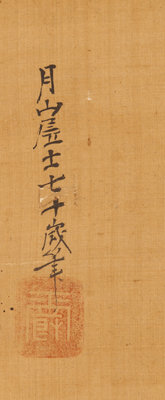 月山居士七十歲筆